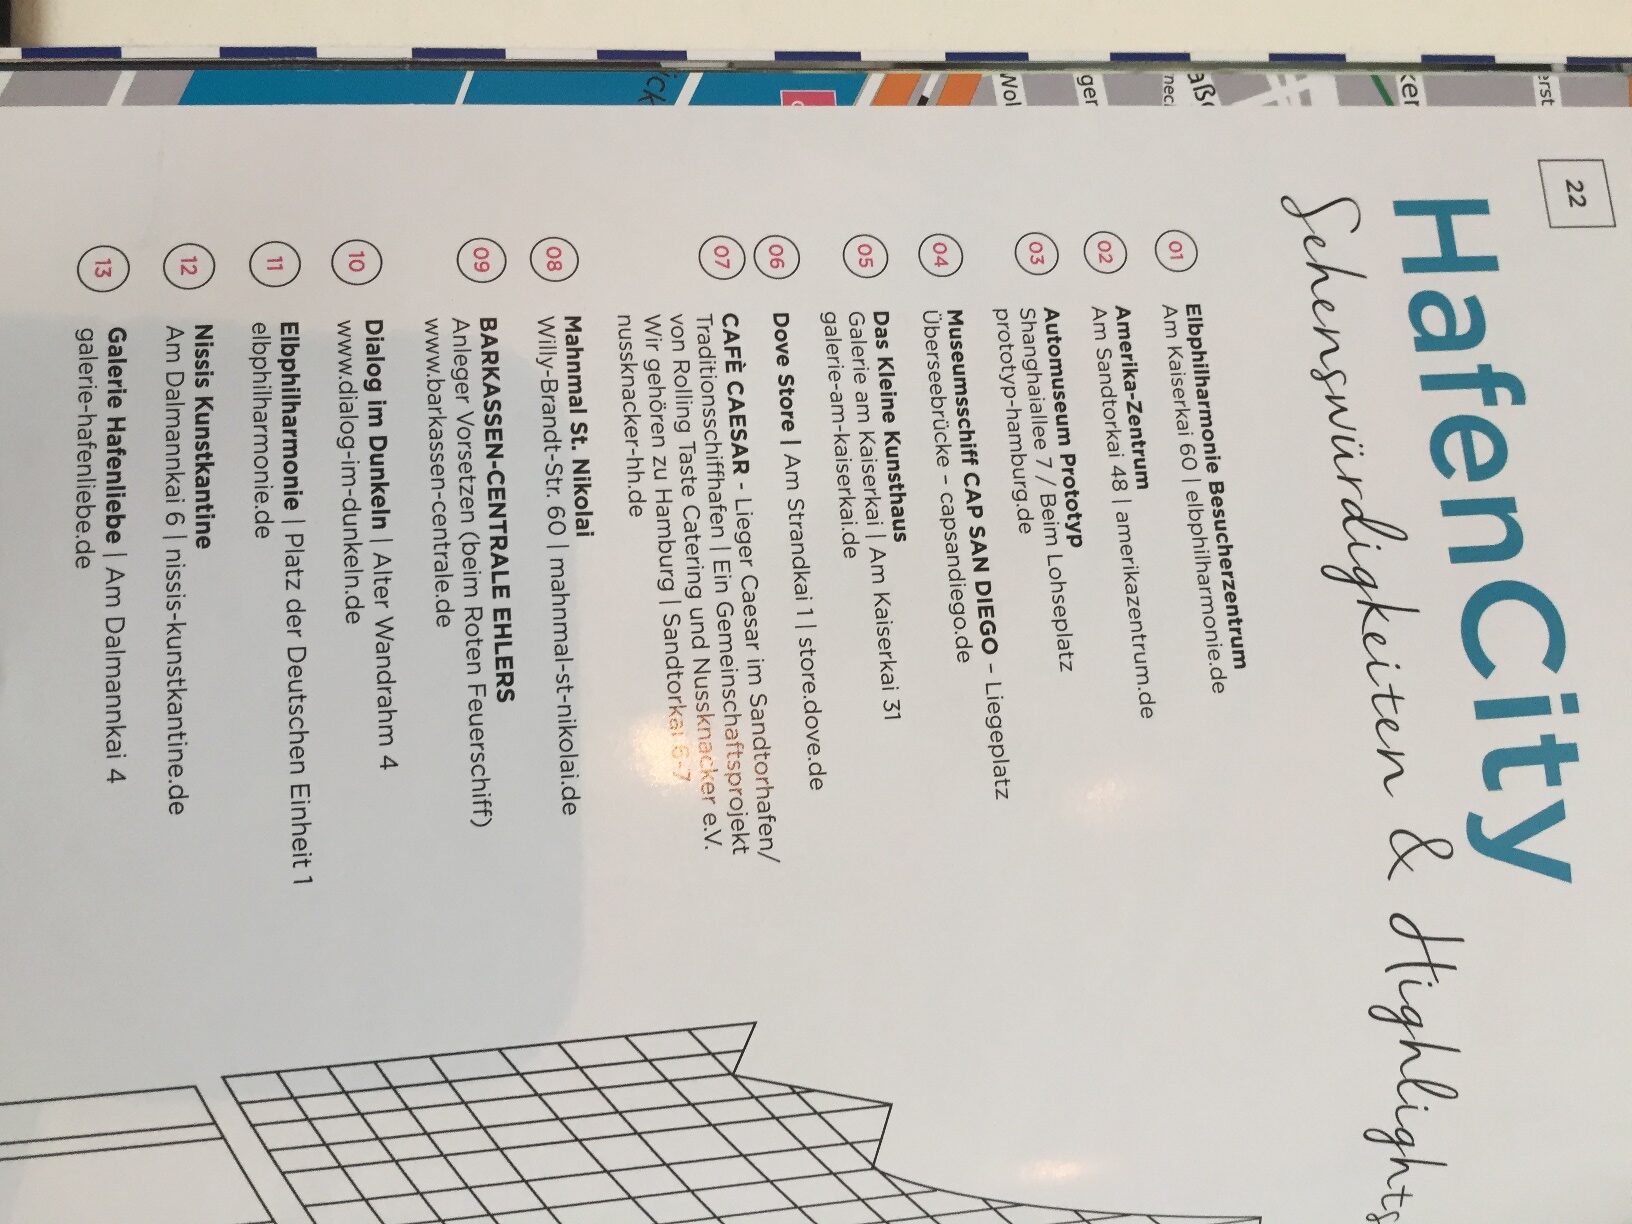 22
HafenCity
Sehenswürdigkeiten & Highlights
01 Elbphilharmonie Besucherzentrum
Am Kaiserkai 60 | elbphilharmonie.de
02 Amerika-Zentrum
Am Sandtorkai 48 | amerikazentrum.de
03 Automuseum Prototyp
Shanghaiallee 7 / Beim Lohseplatz
prototyp-hamburg.de
04 Museumsschiff CAP SAN DIEGO – Liegeplatz
Überseebrücke – capsandiego.de
05 Das Kleine Kunsthaus
Galerie am Kaiserkai | Am Kaiserkai 31
galerie-am-kaiserkai.de
06 Dove Store | Am Strandkai 1 | store.dove.de
07 CAFÈ CAESAR - Lieger Caesar im Sandtorhafen/
Traditionsschiffhafen | Ein Gemeinschaftsprojekt
von Rolling Taste Catering und Nussknacker e.V.
Wir gehören zu Hamburg | Sandtorkai 6-7
nussknacker-hh.de
08 Mahnmal St. Nikolai
Willy-Brandt-Str. 60 | mahnmal-st-nikolai.de
09 BARKASSEN-CENTRALE EHLERS
Anleger Vorsetzen (beim Roten Feuerschiff)
www.barkassen-centrale.de
10 Dialog im Dunkeln | Alter Wandrahm 4
www.dialog-im-dunkeln.de
11 Elbphilharmonie | Platz der Deutschen Einheit 1
elbphilharmonie.de
12 Nissis Kunstkantine
Am Dalmannkai 6 | nissis-kunstkantine.de
13 Galerie Hafenliebe | Am Dalmannkai 4
galerie-hafenliebe.de